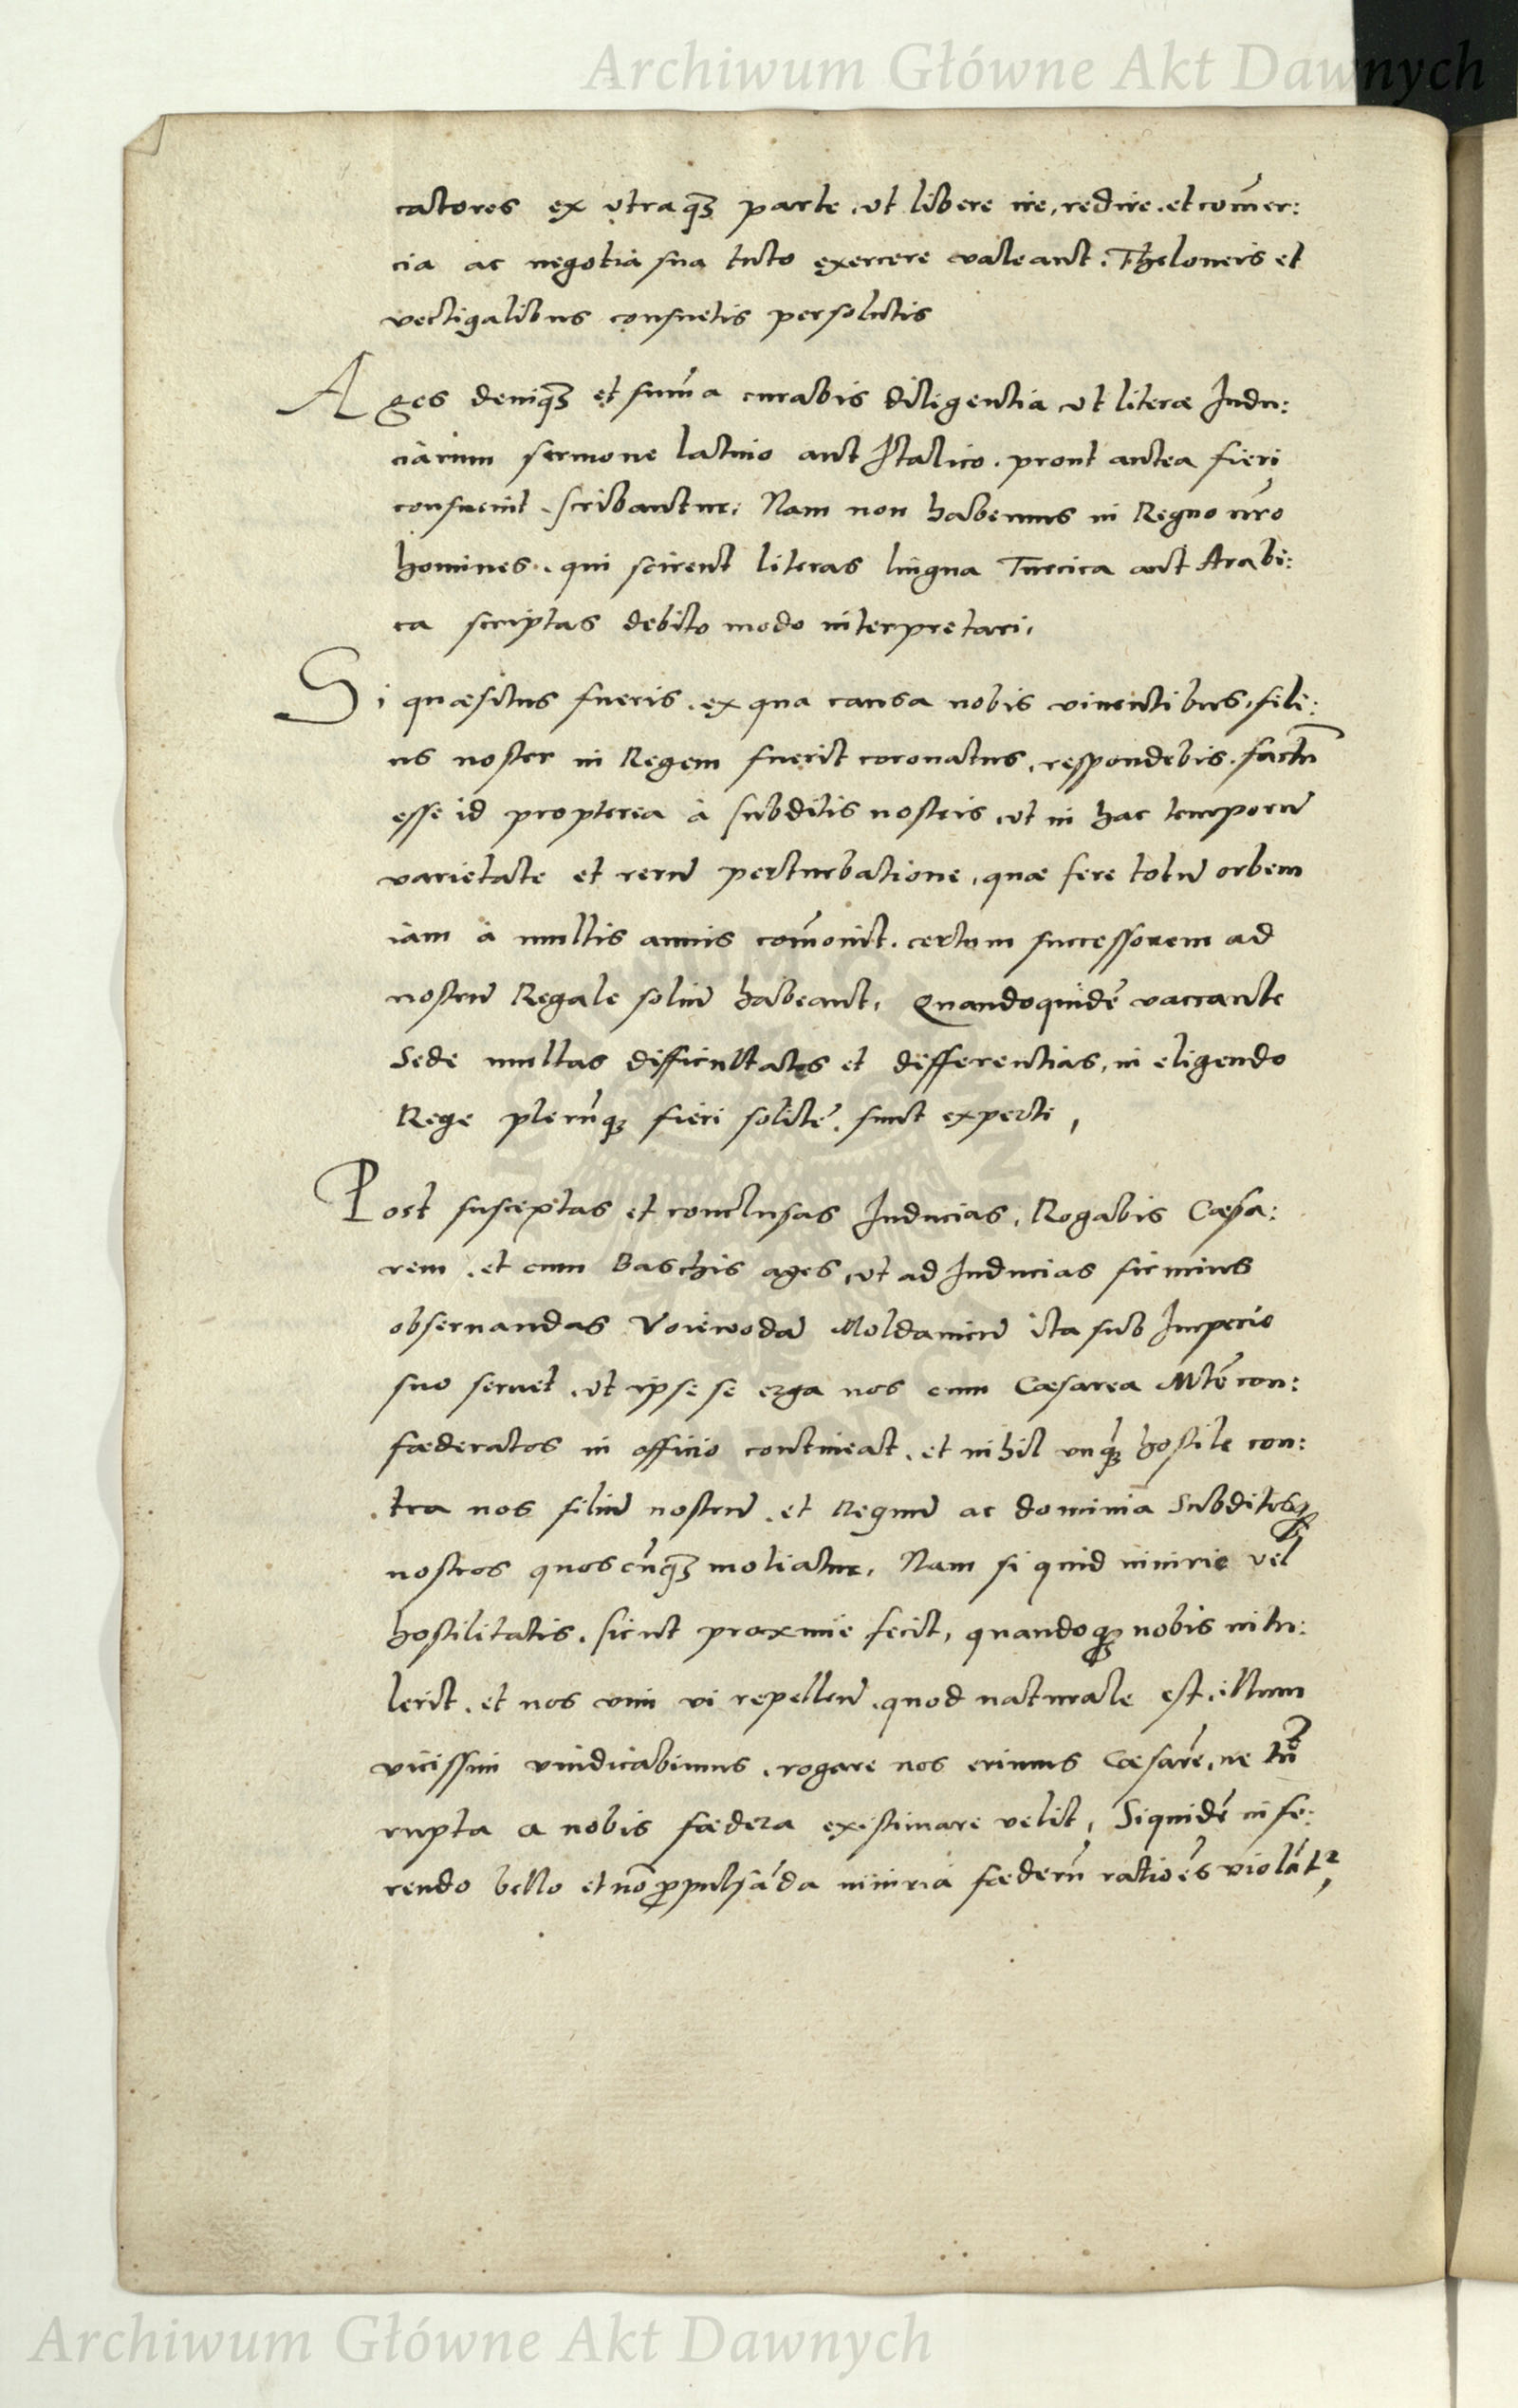 Archiwum Główne Akt Dawnych
catores ex utraq̃ꝫ parte, ut libere ire, redire, et com̃er:
cia ac negotia sua tuto exercere valeant. Theloneis et
vectigalibus consuetis persolutis
Ages deniq̃ꝫ et sum̃a curabis diligentia ut literæ Indu:
ciarum sermone latino aut Italico, prout antea fieri
consuevit, scribantur. Nam non habemus in Regno nr̃o
homines, qui scirent literas lingua Turcica aut Arabi:
ca scriptas debito modo interpretari,
Si quæsitus fueris, ex qua causa nobis viventibus, fili:
us noster in Regem fuerit coronatus, respondebis, factũ
esse id propterea à subditis nostris, ut in hac temporũ
varietate et rerũ perturbatione, quæ fere totũ orbem
iam à multis annis com̃ovit, certum successorem ad
nostrũ Regale soliũ habeant, Quandoquidẽ vaccante
Sede multas difficultates et differentias, in eligendo
Rege plerũqꝫ fieri solitẽ, sunt experti,
Post susceptas et conclusas Inducias, Rogabis Cæsa:
rem, et cum Baschis ages, ut ad Inducias firmius
observandas Voiewodã Moldavicũ ita sub Imperio
suo servet, ut ipse se erga nos cum Cæsarea Mtẽ con:
fæderatos in officio contineat, et nihil unq̃ꝫ hostile con:
tra nos filiũ nostrũ, et Regnũ ac dominia Subditosqꝫ
nostros quoscũq̃ꝫ moliatur, Nam si quid iniurie vel
hostilitatis, sicut proxime fecit, quandoqꝫ nobis intu:
lerit, et nos vim vi repellẽdo, quod naturale est, illum
vicissim vindicabimus, rogare nos erimus Cæsarẽ, ne tñ
rupta a nobis fædera existimare velit, Siquidẽ infe:
rendo bello et nõ ꝓpulsãda iniuria fæderũ ratiões violãt²,
Archiwum Główne Akt Dawnych